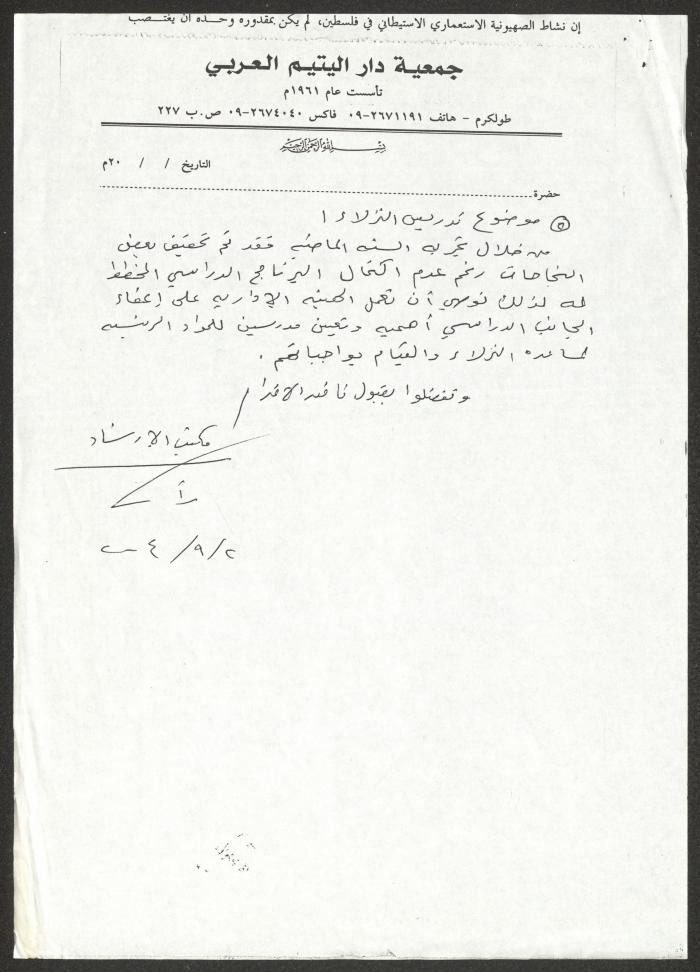 إن نشاط الصهيونية الاستعماري الاستيطاني في فلسطين، لم يكن بمقدوره وحده ان يغتصب
جمعية دار اليتيم العربي
تأسست عام ١٩٦١م
طولكرم - هاتف ٢٦٧١١٩١-٠٩ فاكس ٢٦٧٤٠٤٠-٠٩ ص.ب ٢٢٧
بسم الله الرحمن الرحيم
التاريخ / / ٢٠م
حضرة
٥ موضوع تدريس النزلاء
من خلال تجربه السنه الماضيه فقد تم تحقيق بعض
النجاحات رغم عدم اكتمال البرنامج الدراسي المخطط
له لذلك نوصي أن تعمل الهيئه الإداريه على إعطاء
الجانب الدراسي أهميه وتعيين مدرسين للمواد الرئيسيه
لمساعده النزلاء والقيام بواجباتهم .
وتفضلوا بقبول فائق الاحترام
مكتب الإرشاد
٢/٩/٤